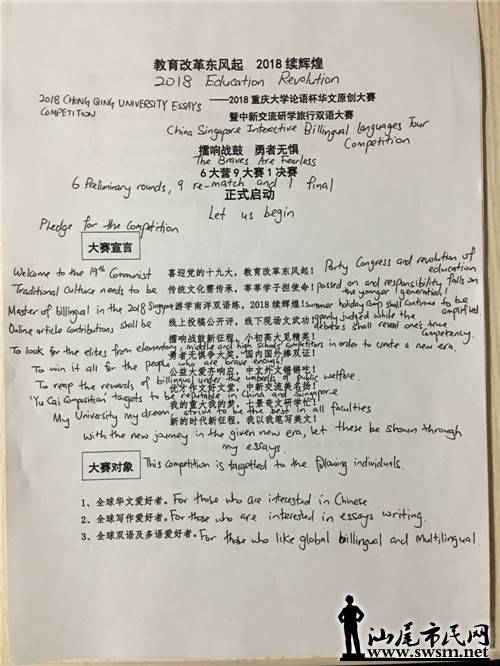 教育改革东风起 2018续辉煌
2018 Education Revolution
2018 CHONG QING UNIVERSITY ESSAYS COMPETITION
——2018重庆大学论语杯华文原创大赛
暨中新交流研学旅行双语大赛
China Singapore Interactive Billingual Languages Tour Competition
擂响战鼓 勇者无惧
The Braves Are Fearless
6大营9大赛1决赛
6 Preliminary rounds, 9 re-match and 1 final
正式启动
Let us begin
Pledge for the competition
大赛宣言
Welcome to the 19th Communist Party Congress and revolution of education
喜迎党的十九大，教育改革东风起！
Traditional culture needs to be passed on and responsibility falls on the younger generation!
传统文化需传承，莘莘学子担使命！
Master of billingual in the 2018 Singapore summer holiday camp shall continue to be amplified.
游学南洋双语练，2018续辉煌！
Online article contributions shall be openly judged while the debates shall reveal one's true competency.
线上投稿公开评，线下现场文武功！
擂响战鼓新征程，小初高大见精英！
To look for the elites from elementary, middle and high school competitors in order to create a new era.
勇者无惧争大奖，国内国外捧双证！
To win it all for the people who are brave enough!
公益大爱齐响应，中文外文错锵吃！
To reap the rewards of billingual under the umbrella of public welfare.
优秀作文好文堂，中新交流美名扬！
'Yu Cai Composition' targets to be reputable in China and Singapore
我的重大我的梦，七景奇文研学忙！
My University my dream, strive to be the best in all faculties
新的时代新征程，我以我笔写美文！
With the new journey in the given new era, let these be shown through my essays.
大赛对象
This competition is targetted to the following individuals.
1、全球华文爱好者。For those who are interested in Chinese
2、全球写作爱好者。For those who are interested in essays writing.
3、全球双语及多语爱好者。For those who like global billingual and Multilingual.
汕尾市民网
www.swsm.net